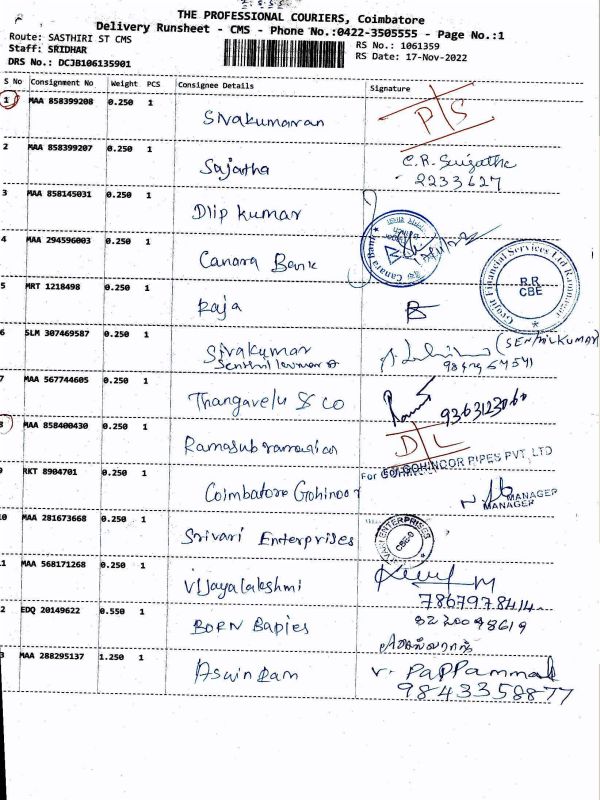 THE PROFESSIONAL COURIERS, Coimbatore
Delivery Runsheet - CMS - Phone No.:0422-3505555 - Page No.:1
Route: SASTHIRI ST CMS
RS No.: 1061359
Staff: SRIDHAR
RS Date: 17-Nov-2022
DRS No.: DCJB106135901
S No Consignment No Weight PCS Consignee Details Signature
1 MAA 858399208 0.250 1 Sivakumaran P/S
2 MAA 858399207 0.250 1 Sajatha C.R. 2233627
3 MAA 858145031 0.250 1 Dlip kumar
4 MAA 294596003 0.250 1 Canara Bank
Canara Bank
5 MRT 1218498 0.250 1 Raja
Financial Services Ltd
R.R
CBE
6 SLM 307469587 0.250 1 Sivakumar
(SENTHILKUMAR)
7 MAA 567744605 0.250 1 Thangavelu & co
8 MAA 858400430 0.250 1 Ramasubramanian D/L
For GOHINOOR PIPES PVT. LTD
9 RKT 8904701 0.250 1 Coimbatore Gohinoor
MANAGER
MANAGER
10 MAA 281673668 0.250 1 Srivari Enterprises
VARI ENTERPRISES
CBE-
11 MAA 568171268 0.250 1 Vijayalakshmi
7867978414
2 EDQ 20149622 0.550 1 BORN Babies 8220098619
3 MAA 288295137 1.250 1 Aswin Ram V. Pappammal
9843358877